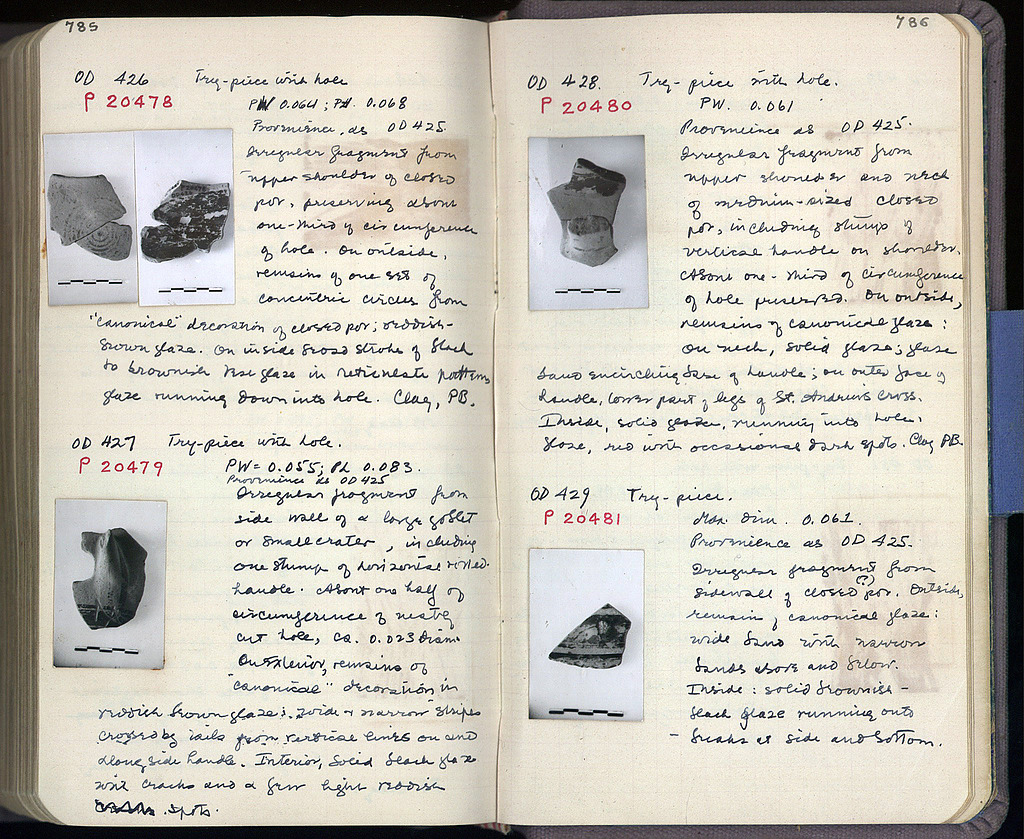 785
OD 426 Try-piece with hole
P 20478
PW 0.064; PH. 0.068
Provenience, as OD 425.
Irregular fragment from
upper shoulder of closed
pot, preserving about
one-third of circumference
of hole. On outside,
remains of one set of
concentric circles from
"canonical" decoration of closed pot; reddish-
brown glaze. On inside broad stroke of black
to brownish glaze in reticulate pattern
glaze running down into hole. Clay, PB.
OD 427 Try-piece with hole.
P 20479
PW = 0.055; PL 0.083.
Provenience as OD 425
Irregular fragment from
side wall of a large goblet
or small crater, including
one stump of horizontal rolled
handle. About one half of
circumference of neatly
cut hole, ca. 0.023 Diam.
On exterior, remains of
"canonical" decoration in
reddish brown glaze: wide & narrow stripes
crossed by tails from vertical lines on and
alongside handle. Interior, solid black glaze
with cracks and a few light reddish
spots.
786
OD 428. Try-piece with hole.
P 20480
PW. 0.061
Provenience as OD 425.
Irregular fragment from
upper shoulder and neck
of medium-sized closed
pot, including stump of
vertical handle on shoulder.
About one-third of circumference
of hole preserved. On outside,
remains of canonical glaze:
On neck, solid glaze; glaze
band encircling base of handle; on outer face of
handle, lower part of legs of St. Andrew's cross.
Inside, solid glaze, running into hole.
Glaze, red with occasional dark spots. Clay PB.
OD 429 Try-piece.
P 20481
Max. Dim. 0.061.
Provenience as OD 425.
Irregular fragment from
sidewall of closed (?) pot. Outside,
remain of canonical glaze:
wide band with narrow
bands above and below.
Inside: solid brownish-
black glaze running onto
breaks at side and bottom.